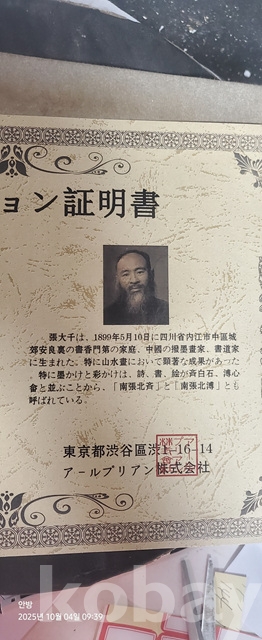 ョン証明書
張大千は、1899年5月10日に四川省内江市中區城
郊安良裏の書香門第の家庭、中國の撥墨畫家、書道家
に生まれた。特に山水畫において顕著な成果があった
特に墨かけと彩かけは、詩、書、絵が斉白石、溥心
畬と並ぶことから、「南張北斉」と「南張北溥」とも
呼ばれている。
東京都渋谷區渋1-16-14
アールブリアン株式会社
안방
2025년 10월 04일 09:39
kobay